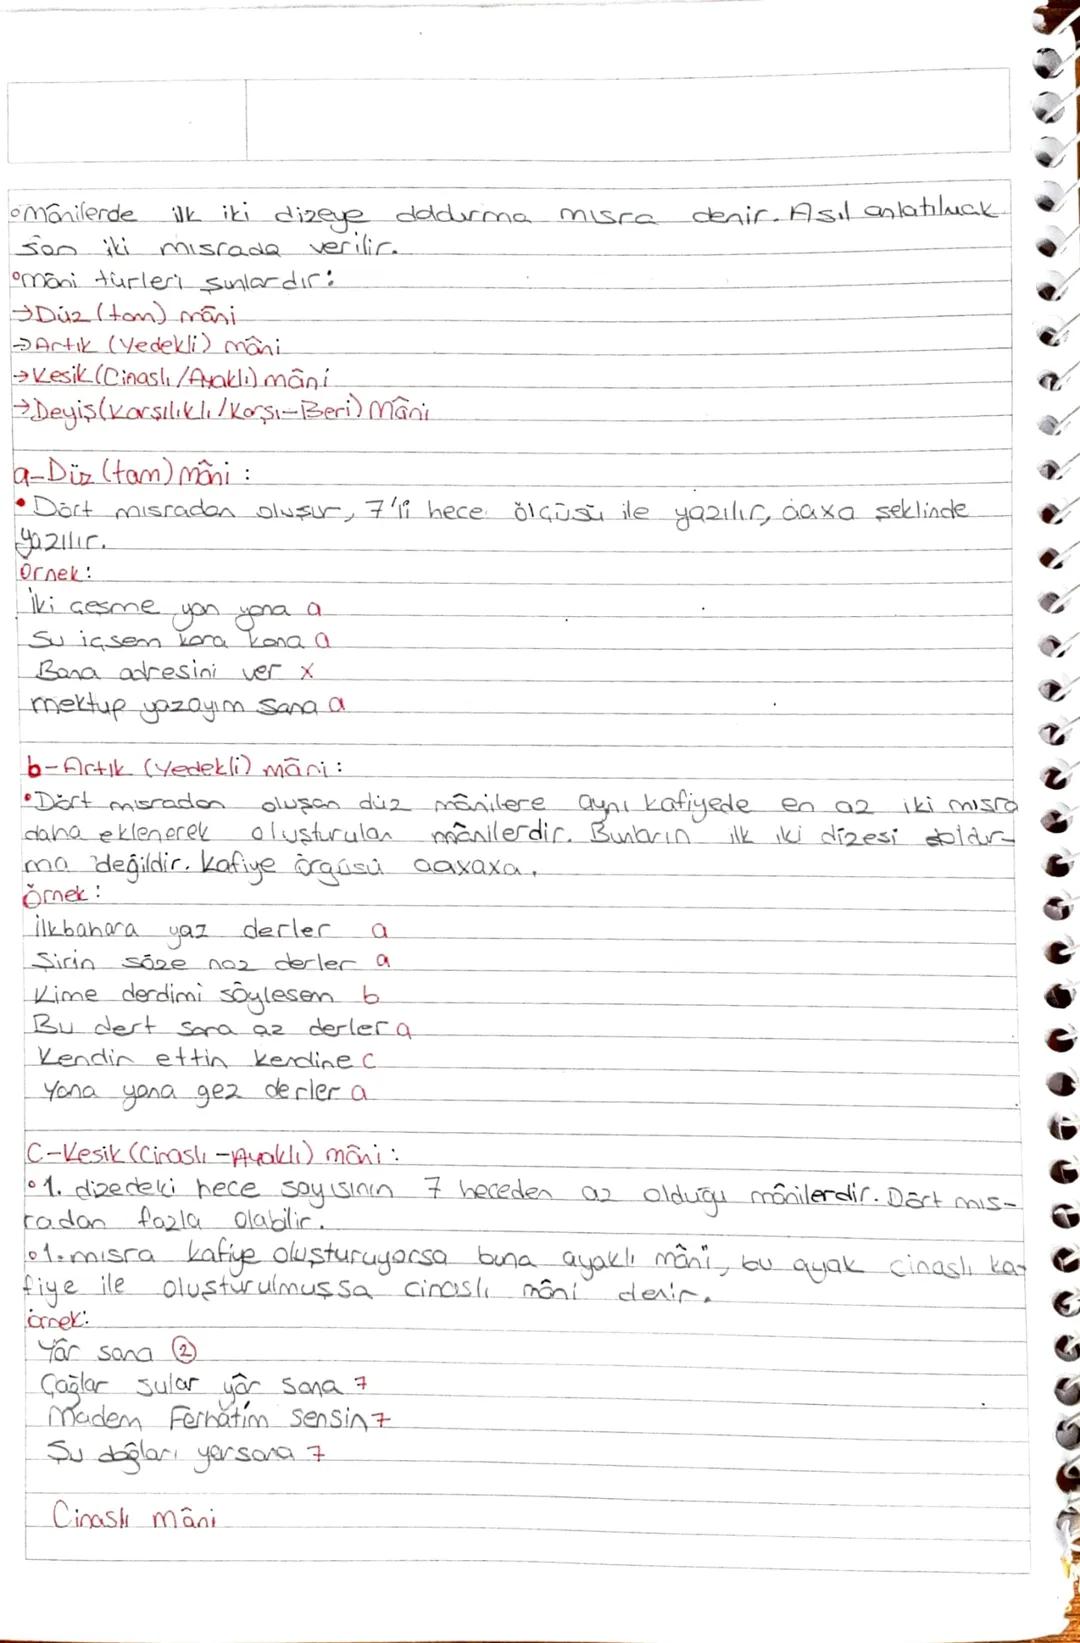 ○Mânilerde ilk iki dizeye doldurma mısra denir. Asıl anlatılmak
son iki mısrada verilir.
○Mâni türleri şunlardır:
→Düz (tam) mâni
→Artık (Yedekli) mâni
→Kesik (Cinaslı/Ayaklı) mâni
→Deyiş (Karşılıklı/Karşı-Beri) Mâni
a-Düz (tam) mâni :
• Dört mısradan oluşur, 7'li hece ölçüsü ile yazılır, aaxa şeklinde
yazılır.
Örnek:
İki çeşme yan yana a
Su içsem kana kana a
Bana adresini ver x
mektup yazayım sana a
b-Artık (Yedekli) mâni:
•Dört mısradan oluşan düz mânilere aynı kafiyede en az iki mısra
daha eklenerek oluşturulan mânilerdir. Bunların ilk iki dizesi doldur-
ma değildir. Kafiye örgüsü aaxaxa.
Örnek:
İlkbahara yaz derler a
Şirin söze naz derler a
Kime derdimi söylesem b
Bu dert sana az derler a
Kendin ettin kendine c
Yana yana gez derler a
C-Kesik (Cinaslı-Ayaklı) mâni:
○1. dizedeki hece sayısının 7 heceden az olduğu mânilerdir. Dört mıs-
radan fazla olabilir.
○1. mısra kafiye oluşturuyorsa buna ayaklı mâni", bu ayak cinaslı ka-
fiye ile oluşturulmuşsa cinaslı mâni denir.
örnek:
Yâr sana ②
Çağlar sular yâr sana 7
Madem Ferhâtım sensin 7
Şu dağları yarsana 7
Cinaslı mâni